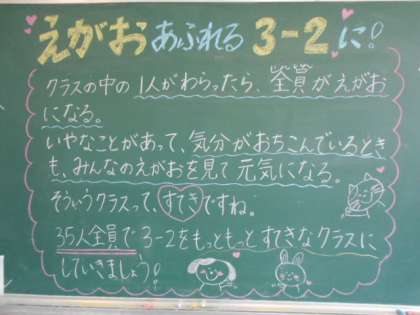 えがおあふれる 3-2 に!
クラスの中の1人がわらったら、全員がえがお
になる。
いやなことがあって、気分がおちこんでいるとき
も、みんなのえがおを見て元気になる。
そういうクラスって、すてきですね。
35人全員で3-2をもっともっとすてきなクラスに
していきましょう!